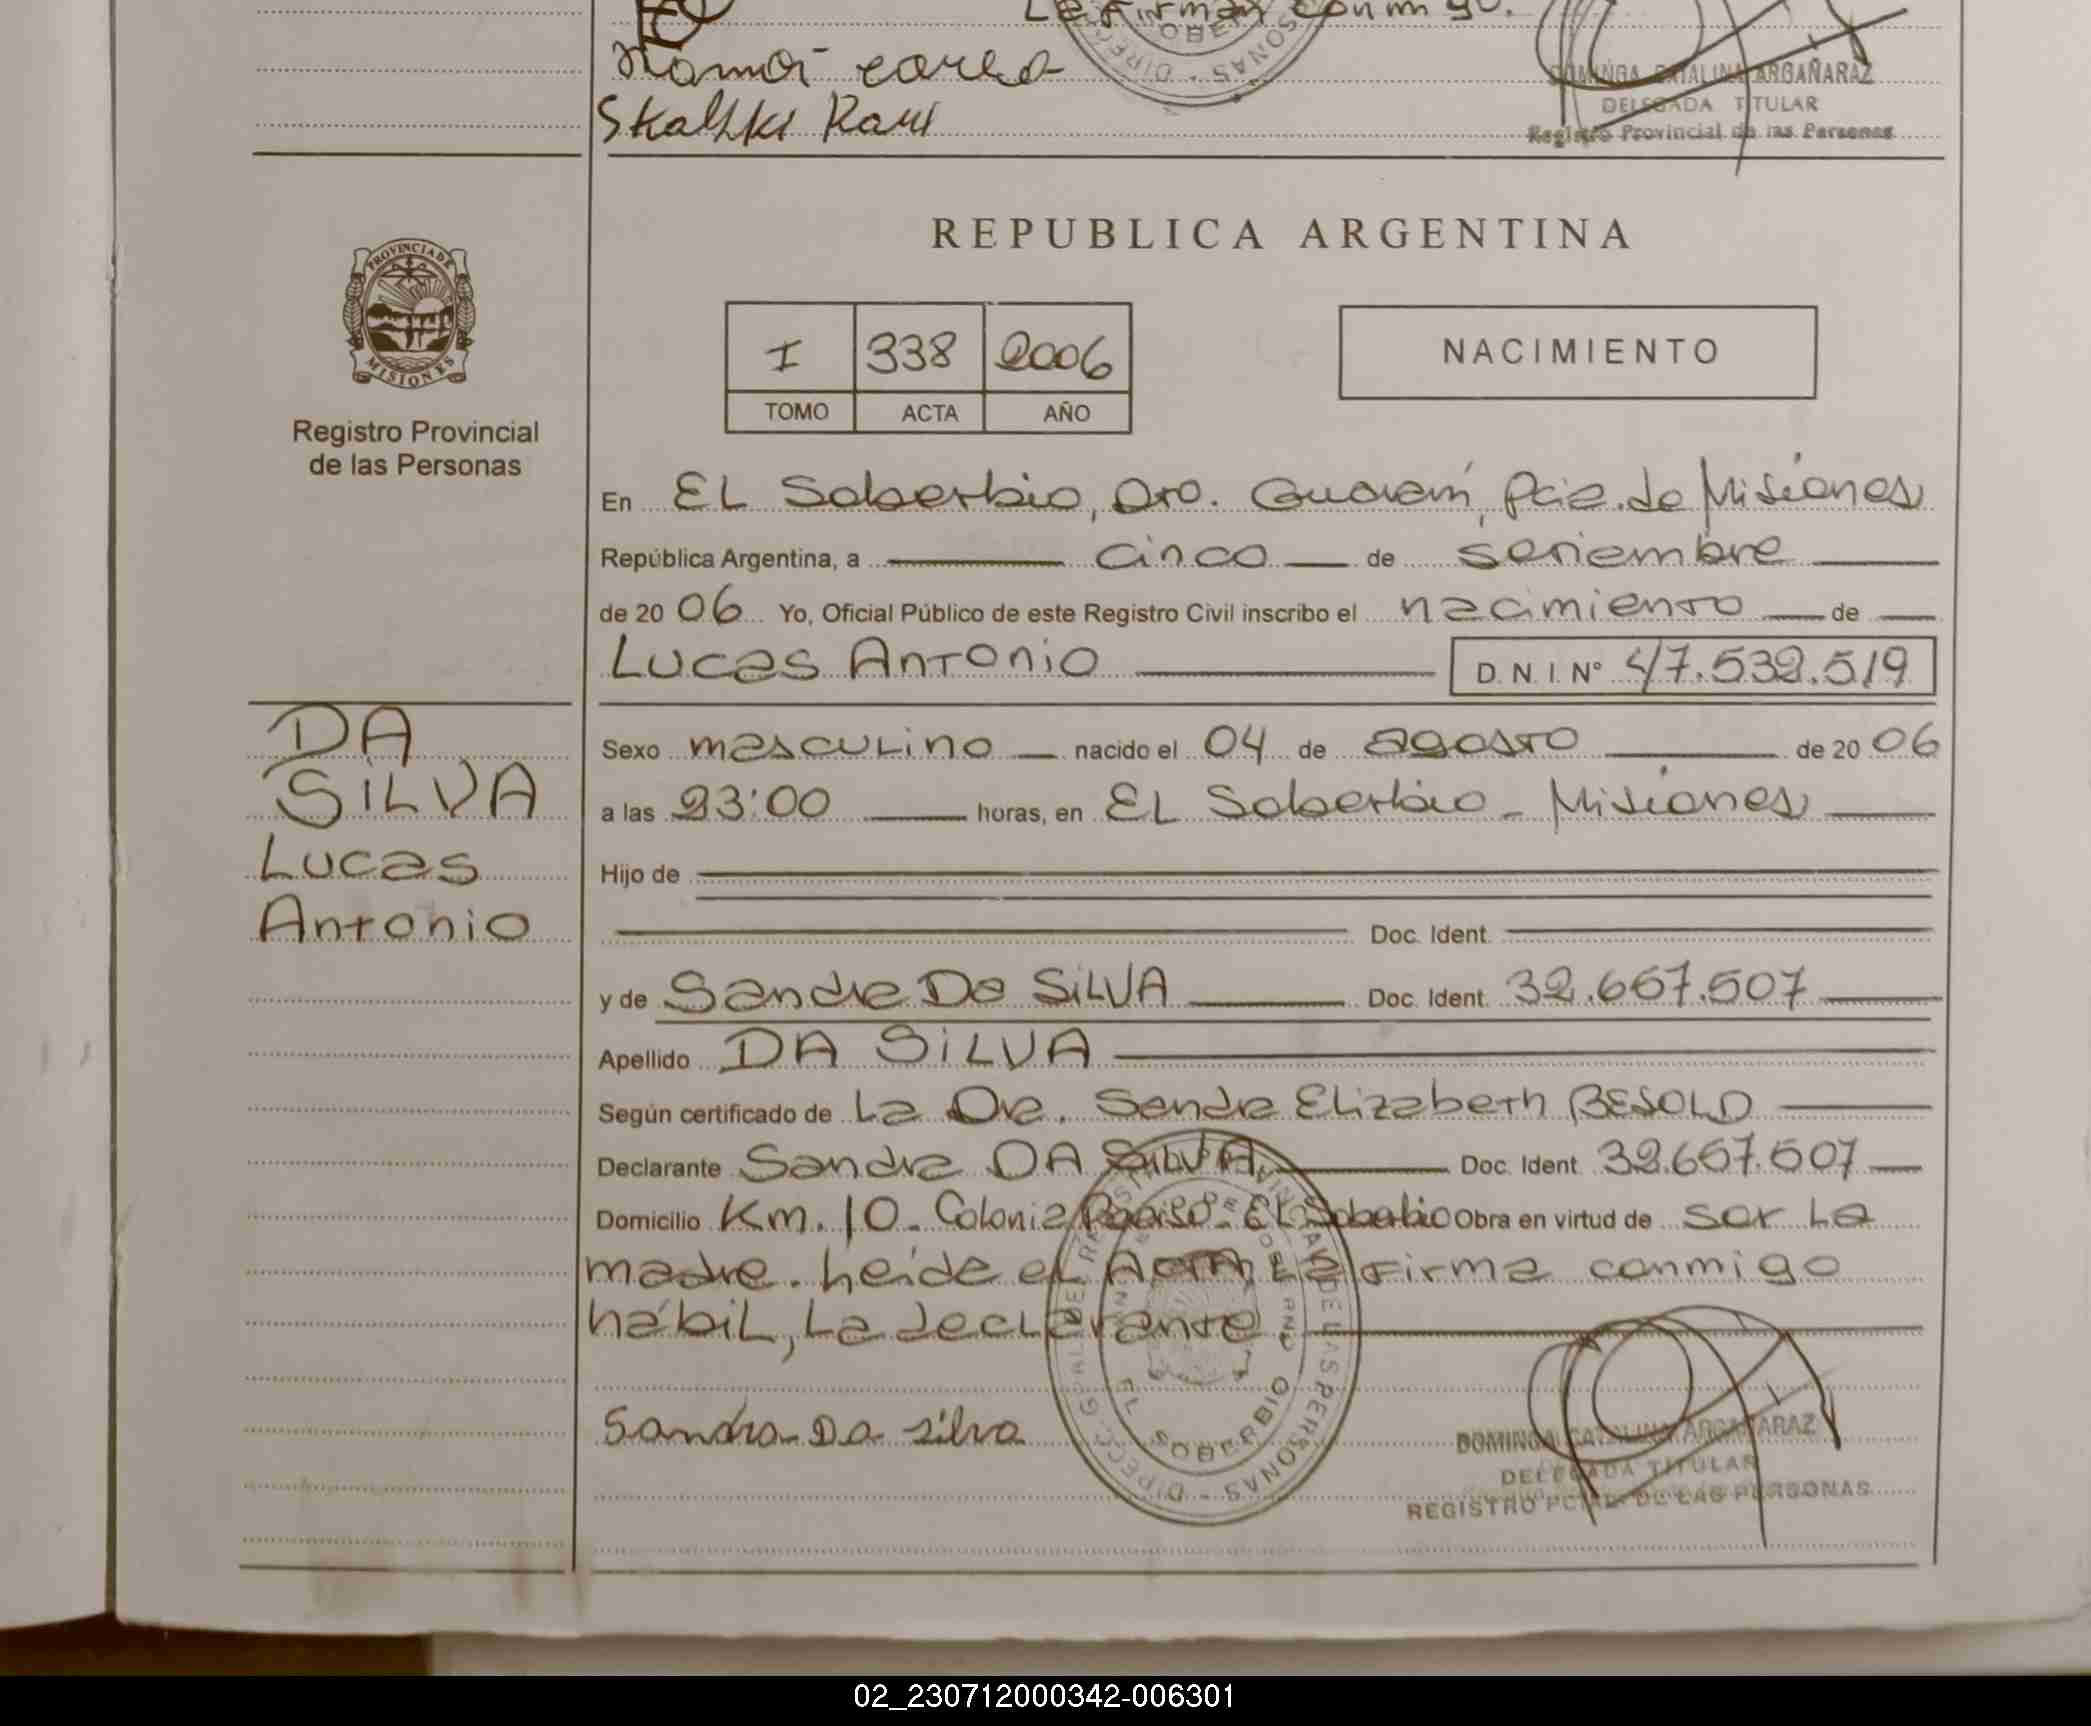 La firman conmigo.
Ramón Correa
Skalski Raul
DOMINGA CATALINA ARGAÑARAZ
DELEGADA TITULAR
Registro Provincial de las Personas
PROVINCIA DE
MISIONES
Registro Provincial
de las Personas
REPUBLICA ARGENTINA
I 338 2006
TOMO ACTA AÑO
NACIMIENTO
En EL Soberbio, Dto. Guaraní, Pcia. de Misiones
República Argentina, a cinco de setiembre
de 20 06 Yo, Oficial Público de este Registro Civil inscribo el nacimiento de
Lucas Antonio D.N.I. Nº 47.532.519
DA
SILVA
Lucas
Antonio
Sexo masculino nacido el 04 de agosto de 20 06
a las 23:00 horas, en EL Soberbio - Misiones
Hijo de
Doc. Ident.
y de Sandra Da SILVA Doc. Ident. 32.667.507
Apellido DA SILVA
Según certificado de La Dra. Sandra Elizabeth BESOLD
Declarante Sandra DA SILVA Doc. Ident. 32.667.507
Domicilio Km. 10 - Colonia Paraiso - EL Soberbio Obra en virtud de ser La
madre. Leída el Acta, La firma conmigo
hábil, La declarante
Sandra Da Silva
EL SOBERBIO
DOMINGA CATALINA ARGAÑARAZ
DELEGADA TITULAR
REGISTRO PCIAL. DE LAS PERSONAS
02_230712000342-006301